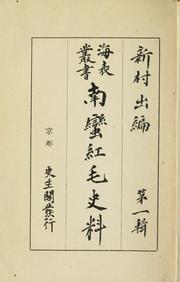 新村出編
第一輯
海表
叢書
南蠻紅毛史料
京都
更生閣發行